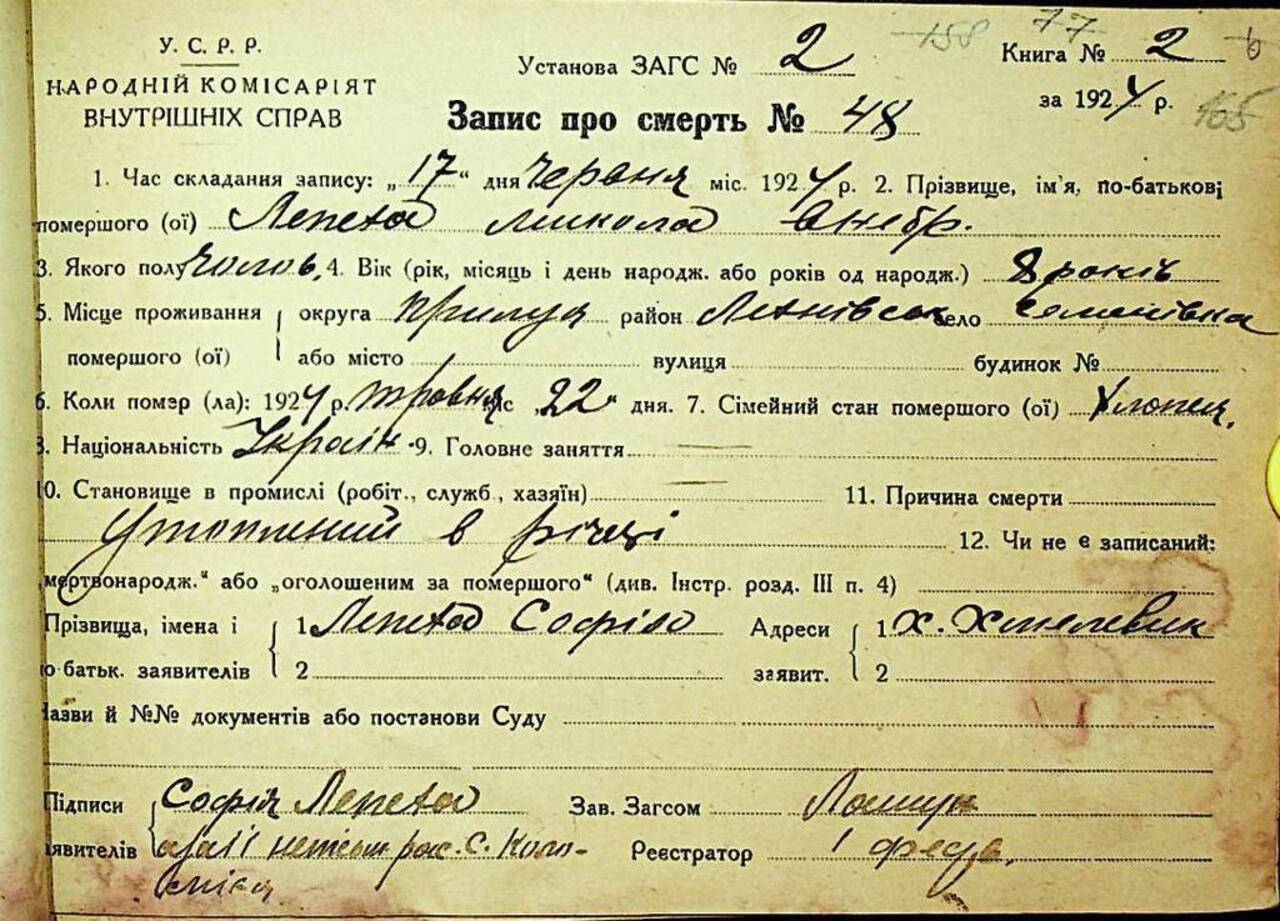 У. С. Р. Р.
НАРОДНІЙ КОМІСАРІЯТ
ВНУТРІШНІХ СПРАВ
Установа ЗАГС № 2
158 77
Книга № 2
за 1924 р. 165
Запис про смерть № 48
1. Час складання запису: „17“ дня Червня міс. 1924 р. 2. Прізвище, ім'я, по-батькові
помершого (ої) Лепета Микола
3. Якого полу Чолов. 4. Вік (рік, місяць і день народж. або років од народж.) 8 років
5. Місце проживання округа Прилуц район село Семенівка
помершого (ої) або місто вулиця будинок №
6. Коли помэр (ла): 1924 р. травня міс „22“ дня. 7. Сімейний стан помершого (ої) Хлопец.
8. Національність Украін 9. Головне заняття
10. Становище в промислі (робіт., служб, хазяїн) 11. Причина смерти
Утоплений в річці 12. Чи не є записаний:
„мертвонародж.“ або „оголошеним за помершого“ (див. Інстр. розд. III п. 4)
Прізвища, імена і 1 Лепета Софія Адреси 1 х.
по батьк. заявителів 2 заявит. 2
Назви й №№ документів або постанови Суду
Підписи Софія Лепета Зав. Загсом
заявителів Реєстратор